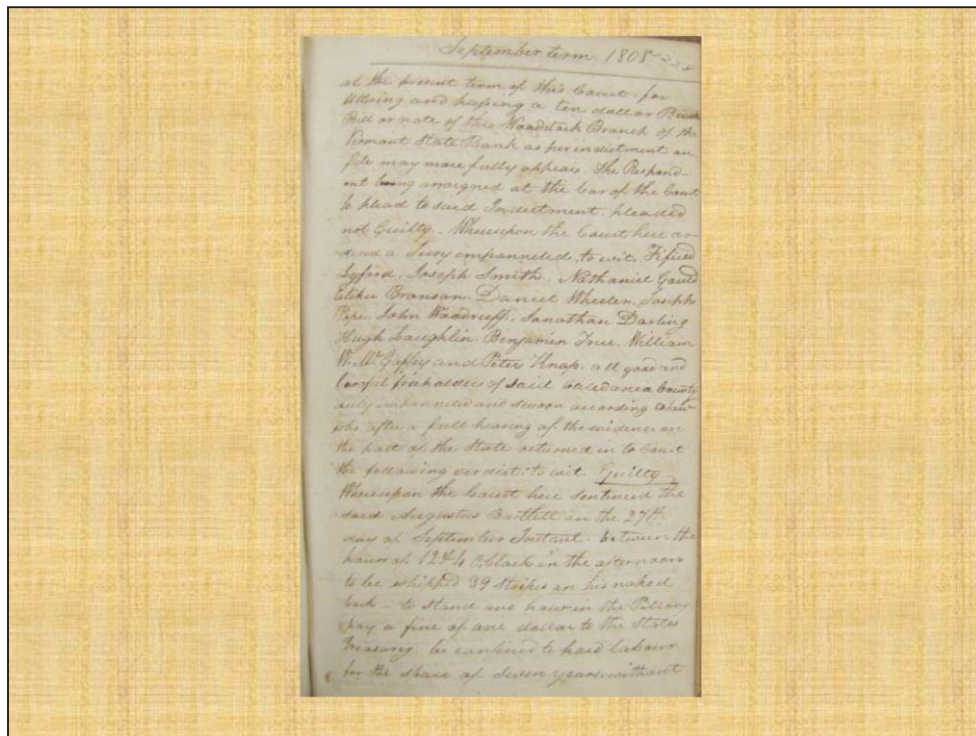 September term 1808 228
at the present term of this Court for
uttering and passing a ten dollar
Bill or note of the Woodstock Branch of the
Vermont State Bank as per indictment on
file may more fully appear. The Respond-
ent being arraigned at the bar of the Court
to plead to said Indictment, pleaded
not Guilty. Whereupon the Court here or
dered a Jury impanneled, to wit, Fifield
Lyford, Joseph Smith, Nathaniel Gould
Branson, Daniel Wheeler, Joseph
Pope, John Woodruff, Jonathan Darling
Hugh Laughlin, Benjamin True, William
W. Mc Gaffey and Peter Knap, all good and
lawful freeholders of said Caledonia County
duly impanneled and sworn according to law
who after a full hearing of the evidence on
the part of the State returned in to Court
the following verdict, to wit. Guilty
Whereupon the Court here sentenced the
said Augustus Bartlett on the 27th
day of September Instant. between the
hours of 12 & 4 O,Clock in the afternoon
to be whipped 39 Stripes on his naked
back – to stand one hour in the Pillory
pay a fine of one dollar to the States
Treasury be confined to hard labour
for the space of Seven years, without